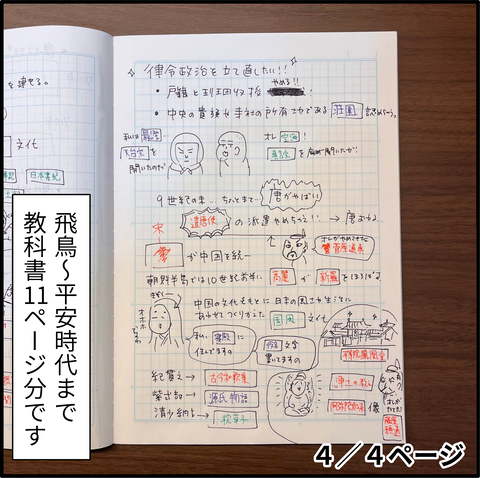 を建てる。
文化
日本書紀
律令政治を立て直したい!!
・戸籍と班田収授 やめる!!
・中央の貴族や寺社の所有地である 荘園 認めちゃう。
私は 最澄
天台宗 を
開いたのだ
オレ 空海!
真言宗 を
9世紀の末… ちょっとまてー
唐がやばい
遣唐使 の派遣やめちゃえ!! →
オレがやめさせた
菅原道真
宋
が中国を統一
朝鮮半島では10世紀前半に 高麗 が 新羅 をほろぼす
中国の文化をもとに 日本の風土や生活に
あわせてつくりかえた 国風 文化
オホホ
私、寝殿に
住んでますの
仮名文字
書いてますの
平等院鳳凰堂
紀貫之 → 古今和歌集
紫式部 → 源氏物語
清少納言 → 枕草子
浄土の教え
阿弥陀如来 像
オレが
たてた!
藤原
頼通
飛鳥〜平安時代まで
教科書11ページ分です
4/4ページ